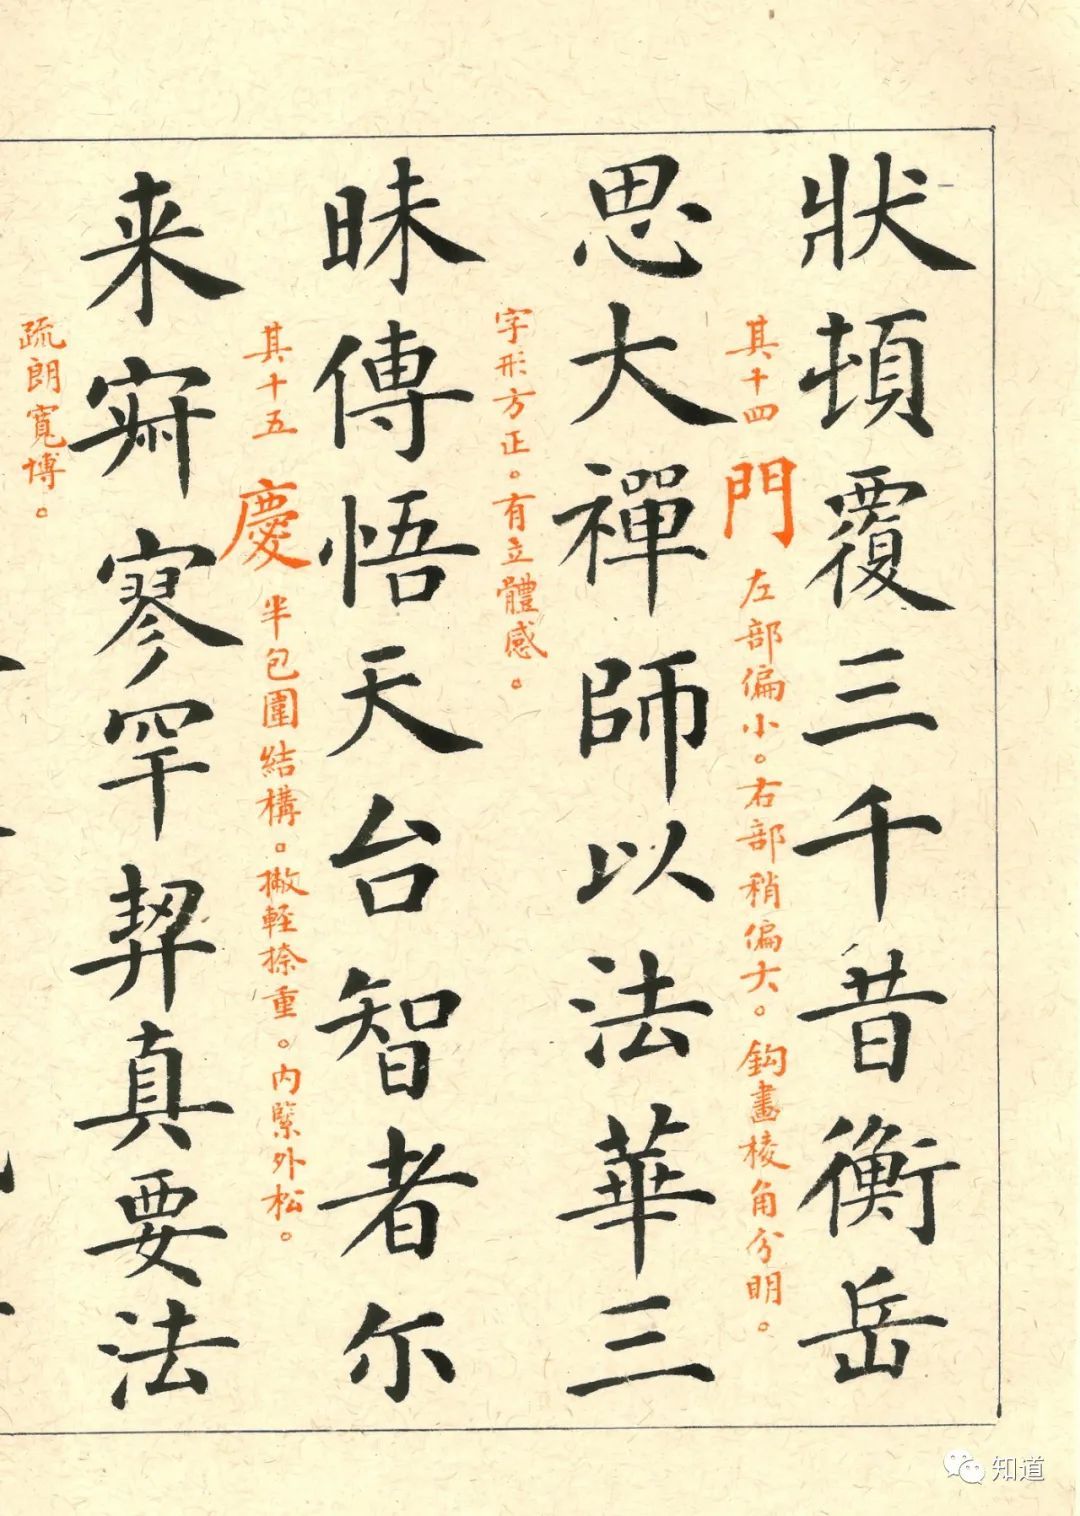 狀頓覆三千昔衡岳
其十四 門 左部偏小。右部稍偏大。鈎畫棱角分明。
思大禪師以法華三
字形方正。有立體感。
昧傳悟天台智者尔
其十五 慶 半包圍結構。撇輕捺重。内緊外松。
来寂寥罕契真要法
疏朗寬博。
知道